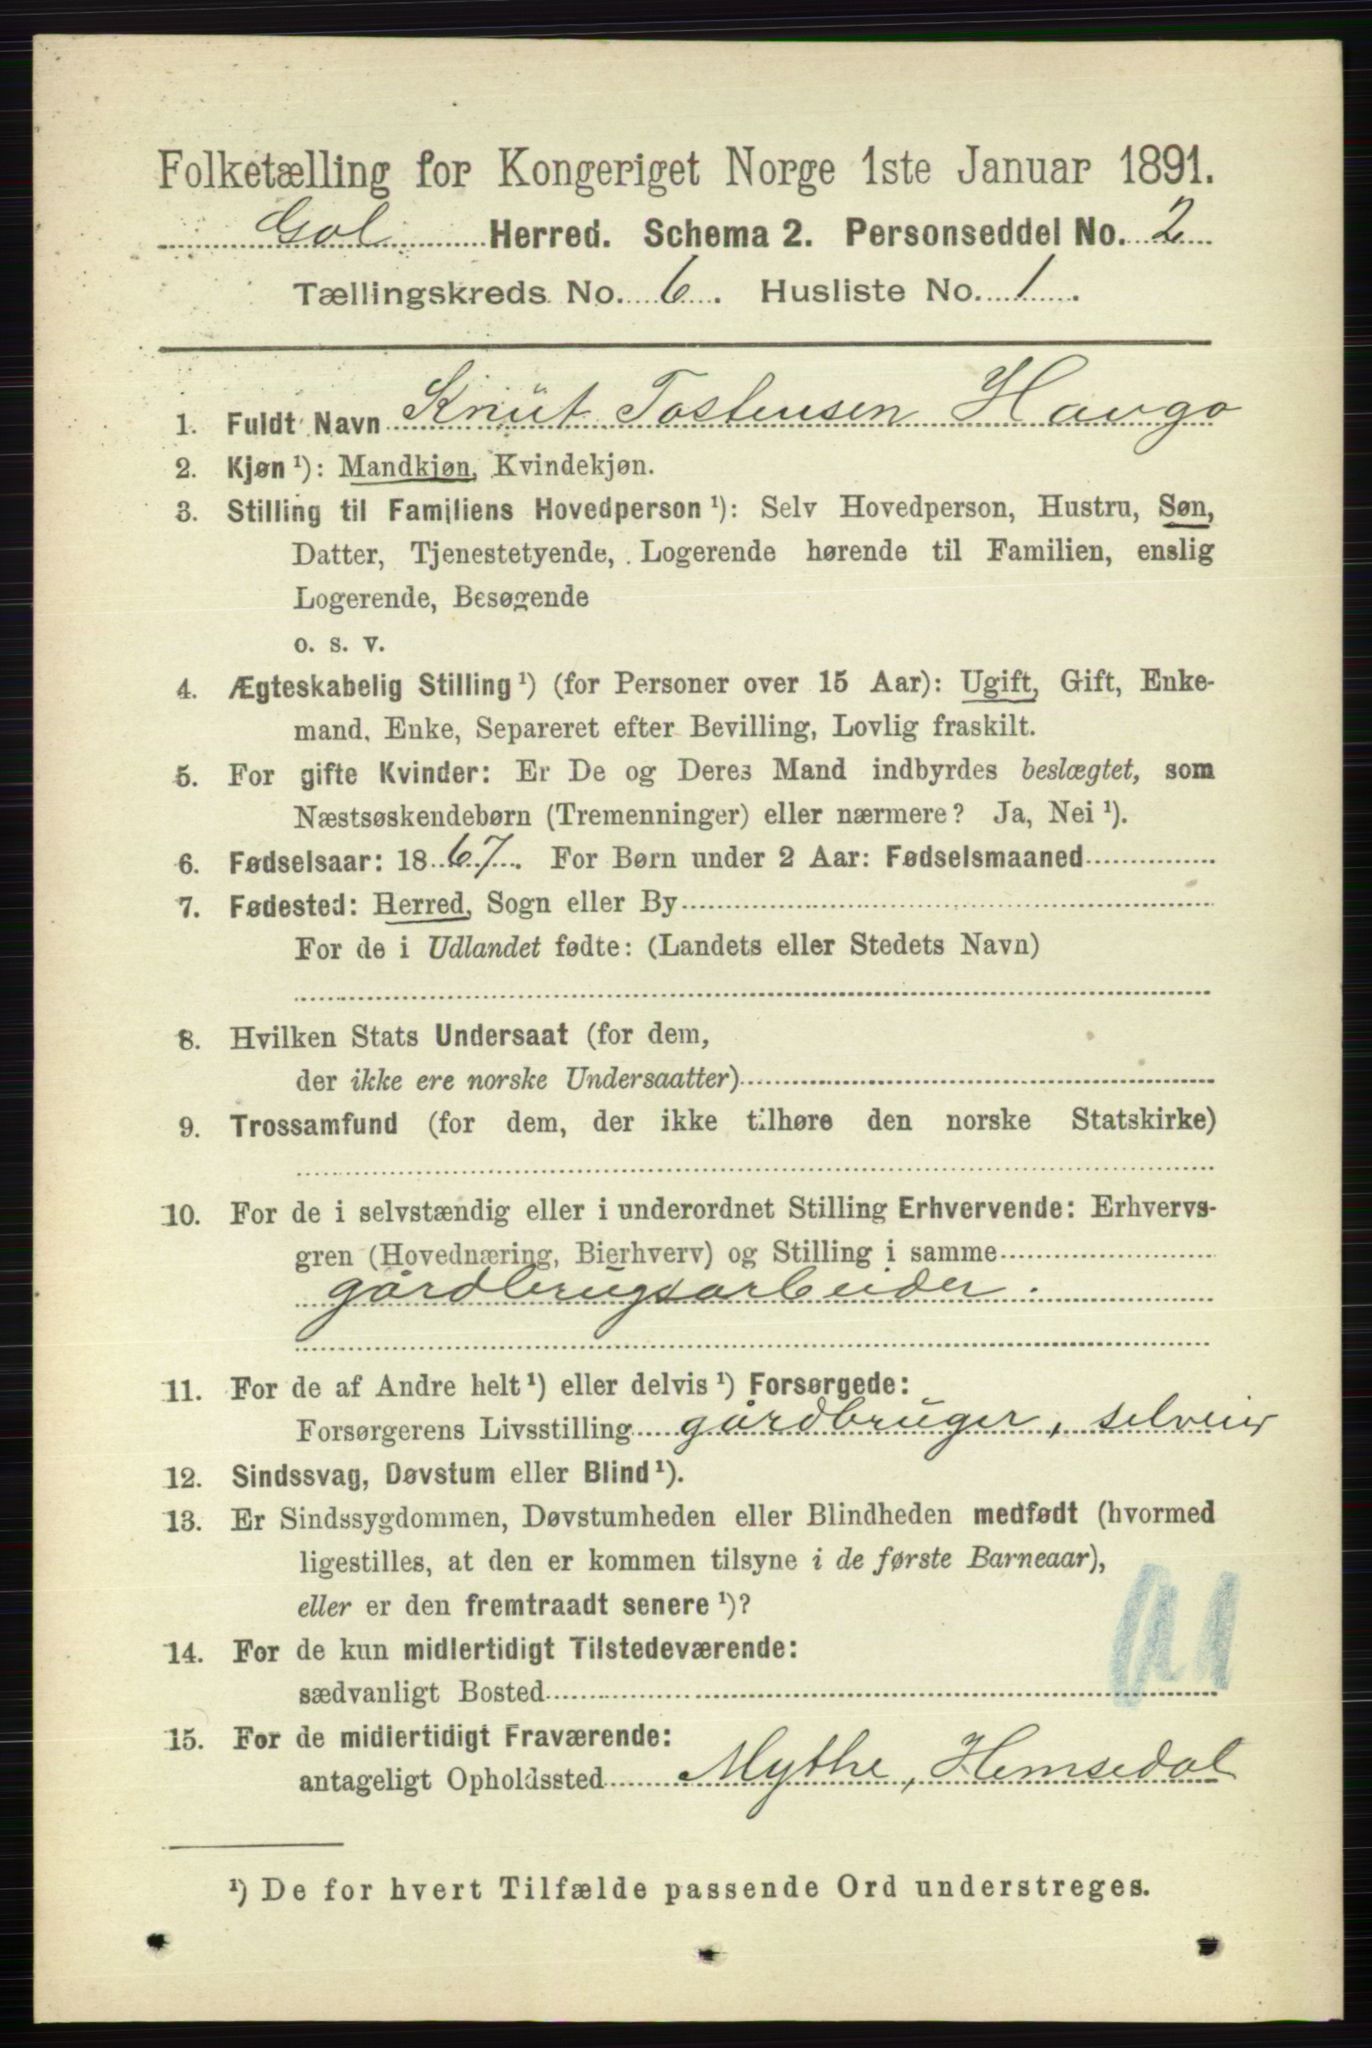 Folketælling for Kongeriget Norge 1ste Januar 1891.
Gol Herred. Schema 2. Personseddel No. 2
Tællingskreds No. 6. Husliste No. 1.
1. Fuldt Navn Knut Tostensen Haugo
2. Kjøn ¹): Mandkjøn, Kvindekjøn.
3. Stilling til Familiens Hovedperson ¹): Selv Hovedperson, Hustru, Søn,
Datter, Tjenestetyende, Logerende hørende til Familien, enslig
Logerende, Besøgende
o. s. v.
4. Ægteskabelig Stilling ¹) (for Personer over 15 Aar): Ugift, Gift, Enke-
mand, Enke, Separeret efter Bevilling, Lovlig fraskilt.
5. For gifte Kvinder: Er De og Deres Mand indbyrdes beslægtet, som
Næstsøskendebørn (Tremenninger) eller nærmere? Ja, Nei ¹).
6. Fødselsaar: 1867. For Børn under 2 Aar: Fødselsmaaned
7. Fødested: Herred, Sogn eller By
For de i Udlandet fødte: (Landets eller Stedets Navn)
8. Hvilken Stats Undersaat (for dem,
der ikke ere norske Undersaatter)
9. Trossamfund (for dem, der ikke tilhøre den norske Statskirke)
10. For de i selvstændig eller i underordnet Stilling Erhvervende: Erhvervs-
gren (Hovednæring, Bierhverv) og Stilling i samme
gårdbrugsarbeider.
11. For de af Andre helt ¹) eller delvis ¹) Forsørgede:
Forsørgerens Livsstilling gårdbruger, selveier
12. Sindssvag, Døvstum eller Blind ¹).
13. Er Sindssygdommen, Døvstumheden eller Blindheden medfødt (hvormed
ligestilles, at den er kommen tilsyne i de første Barneaar),
eller er den fremtraadt senere ¹)?
14. For de kun midlertidigt Tilstedeværende:
sædvanligt Bosted
15. For de midlertidigt Fraværende:
antageligt Opholdssted Mythe, Hemsedal
¹) De for hvert Tilfælde passende Ord understreges.